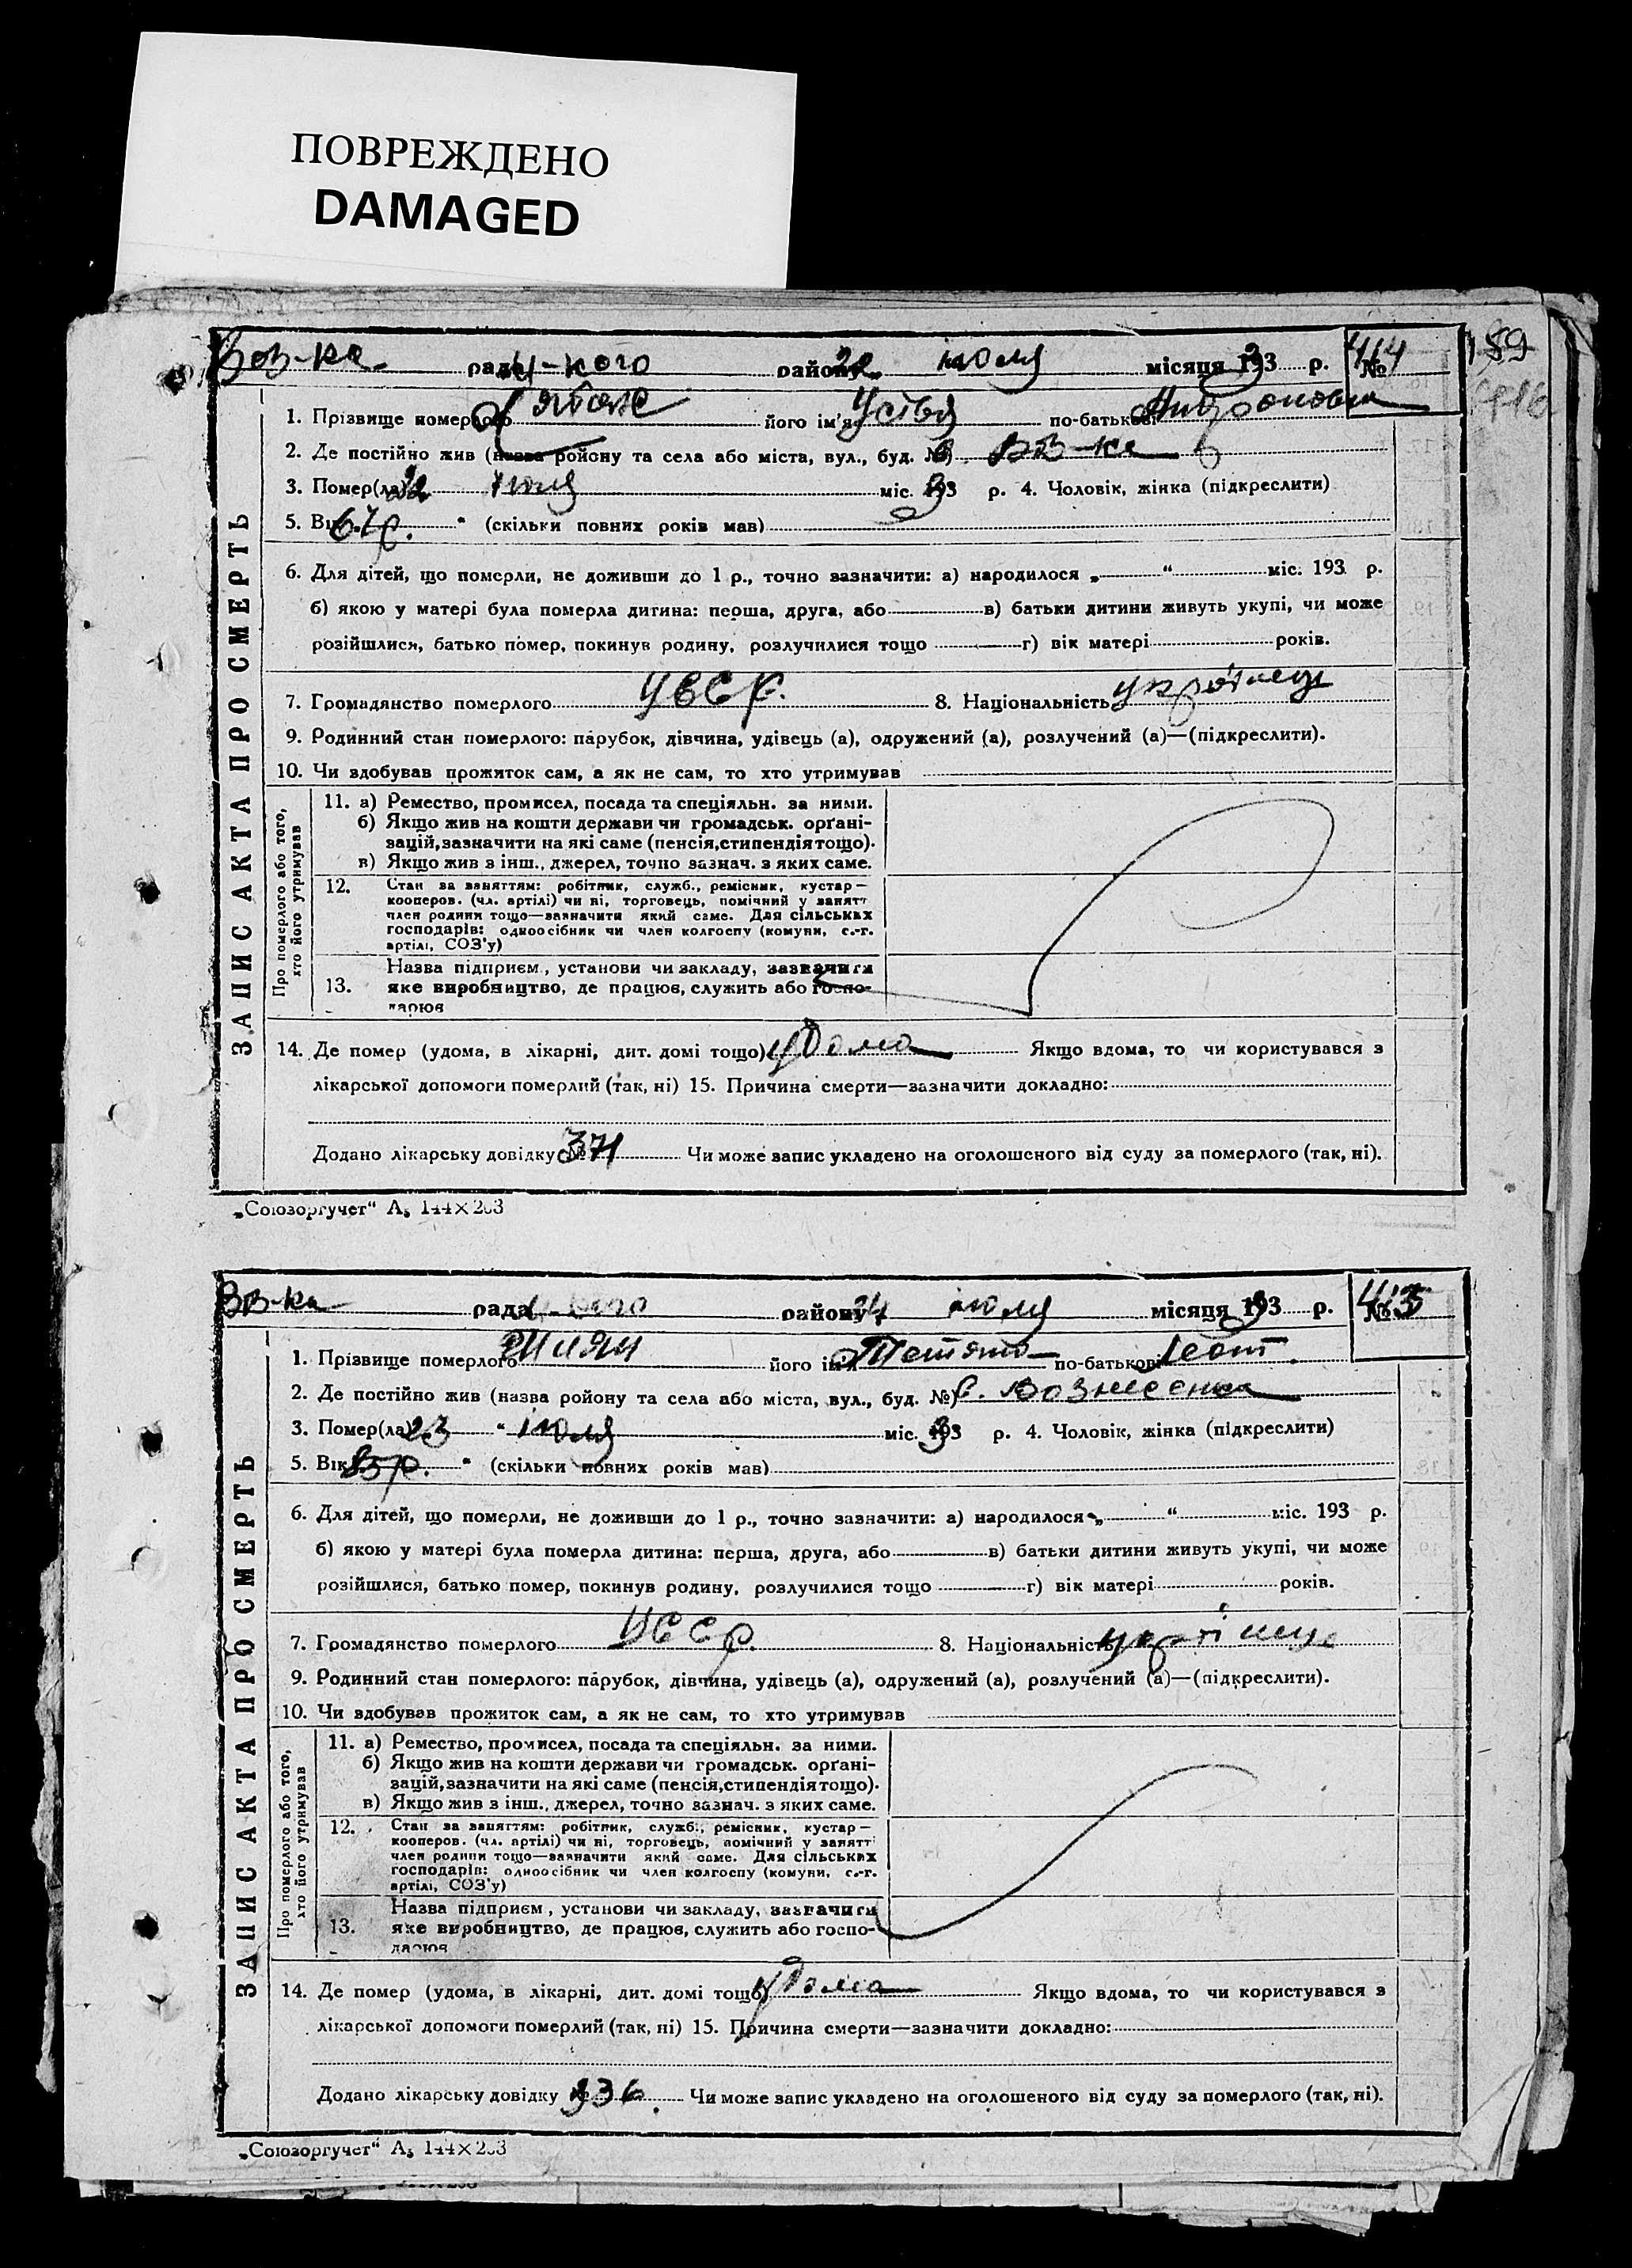 ПОВРЕЖДЕНО
DAMAGED
рада района 22 июля місяця 193 р. № 414
189
1. Прізвище померлого його ім'я по-батькові
2. Де постійно жив (назва ройону та села або міста, вул., буд. №) с. Вв-ка
3. Помер(ла) 22 июля міс. 193 р. 4. Чоловік, жінка (підкреслити)
5. Вік 67 р. " (скільки повних років мав)
6. Для дітей, що померли, не доживши до 1 р., точно зазначити: а) народилося „ “ міс. 193 р.
б) якою у матері була померла дитина: перша, друга, або в) батьки дитини живуть укупі, чи може
розійшлися, батько помер, покинув родину, розлучилися тощо г) вік матері років.
7. Громадянство померлого УССР. 8. Національність українец
9. Родинний стан померлого: парубок, дівчина, удівець (а), одружений (а), розлучений (а)—(підкреслити).
10. Чи здобував прожиток сам, а як не сам, то хто утримував
ЗАПИС АКТА ПРО СМЕРТЬ
Про померлого або того,
хто його утримував
11. а) Ремество, промисел, посада та спеціяльн. за ними.
б) Якщо жив на кошти держави чи громадськ. орґані-
зацій, зазначити на які саме (пенсія, стипендія тощо).
в) Якщо жив з інш., джерел, точно зазнач. з яких саме.
12. Стан за заняттям: робітник, служб., ремісник, кустар—
кооперов. (чл. артілі) чи ні, торговець, помічний у занятт
член родини тощо—зазначити який саме. Для сільських
господарів: одноосібник чи член колгоспу (комуни, с.-г.
артілі, СОЗ'у)
Назва підприєм., установи чи закладу, зазначити
13. яке виробництво, де працює, служить або госпо-
дарює
14. Де помер (удома, в лікарні, дит. домі тощо) удома Якщо вдома, то чи користувався з
лікарської допомоги померлий (так, ні) 15. Причина смерти—зазначити докладно:
Додано лікарську довідку № 371 Чи може запис укладено на оголошеного від суду за померлого (так, ні).
„Союзоргучет“ А₅ 144×203
Вв-ка рада району 24 июля місяця 193 р. № 415
1. Прізвище померлого його ім'я по-батькові
2. Де постійно жив (назва ройону та села або міста, вул., буд. №) с. Вознесенка
3. Помер(ла) 23 " июля міс. 193 р. 4. Чоловік, жінка (підкреслити)
5. Вік 85 р. " (скільки повних років мав)
6. Для дітей, що померли, не доживши до 1 р., точно зазначити: а) народилося „ “ міс. 193 р.
б) якою у матері була померла дитина: перша, друга, або в) батьки дитини живуть укупі, чи може
розійшлися, батько помер, покинув родину, розлучилися тощо г) вік матері років.
7. Громадянство померлого УССР. 8. Національність
9. Родинний стан померлого: парубок, дівчина, удівець (а), одружений (а), розлучений (а)—(підкреслити).
10. Чи здобував прожиток сам, а як не сам, то хто утримував
ЗАПИС АКТА ПРО СМЕРТЬ
Про померлого або того,
хто його утримував
11. а) Ремество, промисел, посада та спеціяльн. за ними.
б) Якщо жив на кошти держави чи громадськ. орґані-
зацій, зазначити на які саме (пенсія, стипендія тощо).
в) Якщо жив з інш., джерел, точно зазнач. з яких саме.
12. Стан за заняттям: робітник, служб., ремісник, кустар—
кооперов. (чл. артілі) чи ні, торговець, помічний у занятт
член родини тощо—зазначити який саме. Для сільських
господарів: одноосібник чи член колгоспу (комуни, с.-г.
артілі, СОЗ'у)
Назва підприєм., установи чи закладу, зазначити
13. яке виробництво, де працює, служить або госпо-
дарює
14. Де помер (удома, в лікарні, дит. домі тощо) удома Якщо вдома, то чи користувався з
лікарської допомоги померлий (так, ні) 15. Причина смерти—зазначити докладно:
Додано лікарську довідку № 336. Чи може запис укладено на оголошеного від суду за померлого (так, ні).
„Союзоргучет“ А₅ 144×203